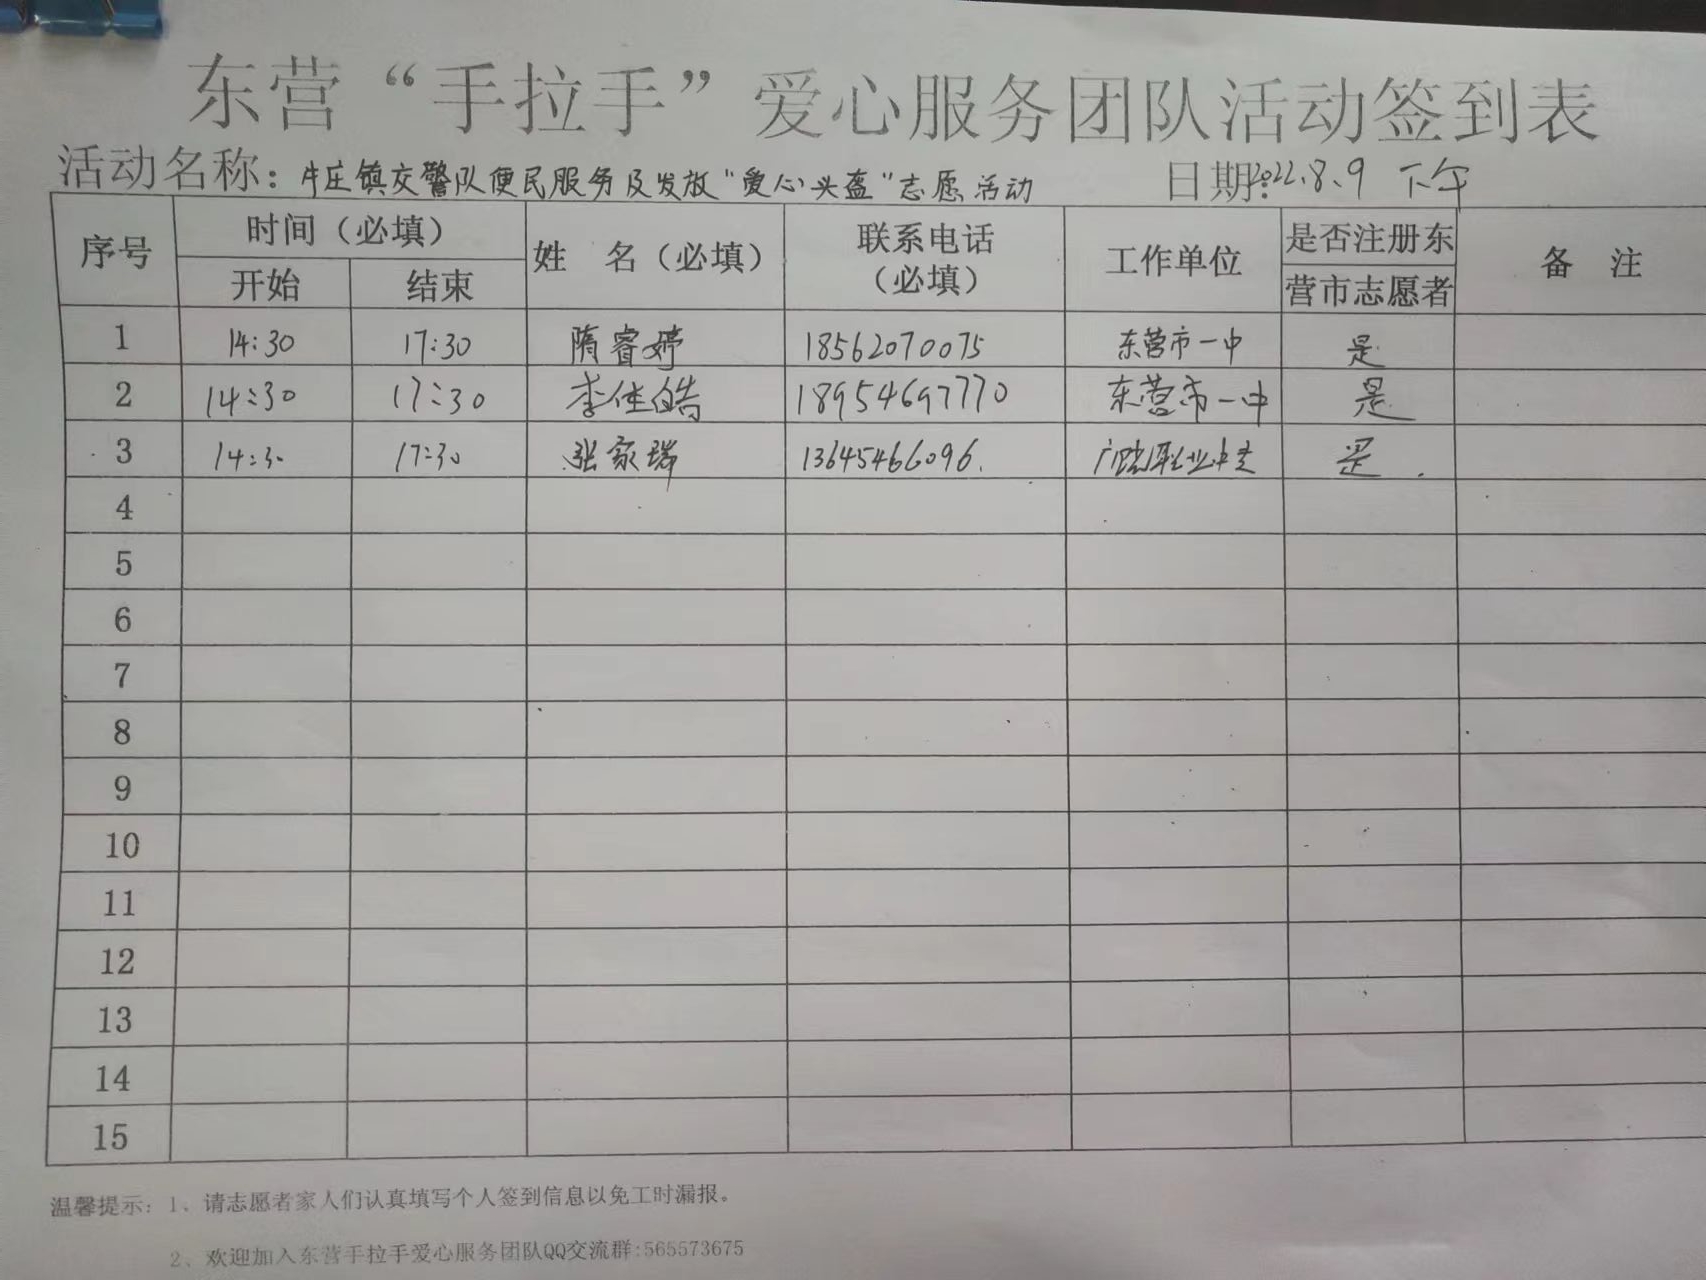 东营“手拉手”爱心服务团队活动签到表
活动名称：牛庄镇交警队便民服务及发放“爱心头盔”志愿活动 日期：2022.8.9 下午
序号 时间（必填） 姓 名（必填） 联系电话（必填） 工作单位 是否注册东营市志愿者 备 注
开始 结束
1 14:30 17:30 隋睿婷 18562070075 东营市一中 是
2 14:30 17:30 李佳皓 18954697770 东营市一中 是
3 14:30 17:30 张家瑞 13645466096. 是.
4
5
6
7
8
9
10
11
12
13
14
15
温馨提示：1、请志愿者家人们认真填写个人签到信息以免工时漏报。
2、欢迎加入东营手拉手爱心服务团队QQ交流群:565573675